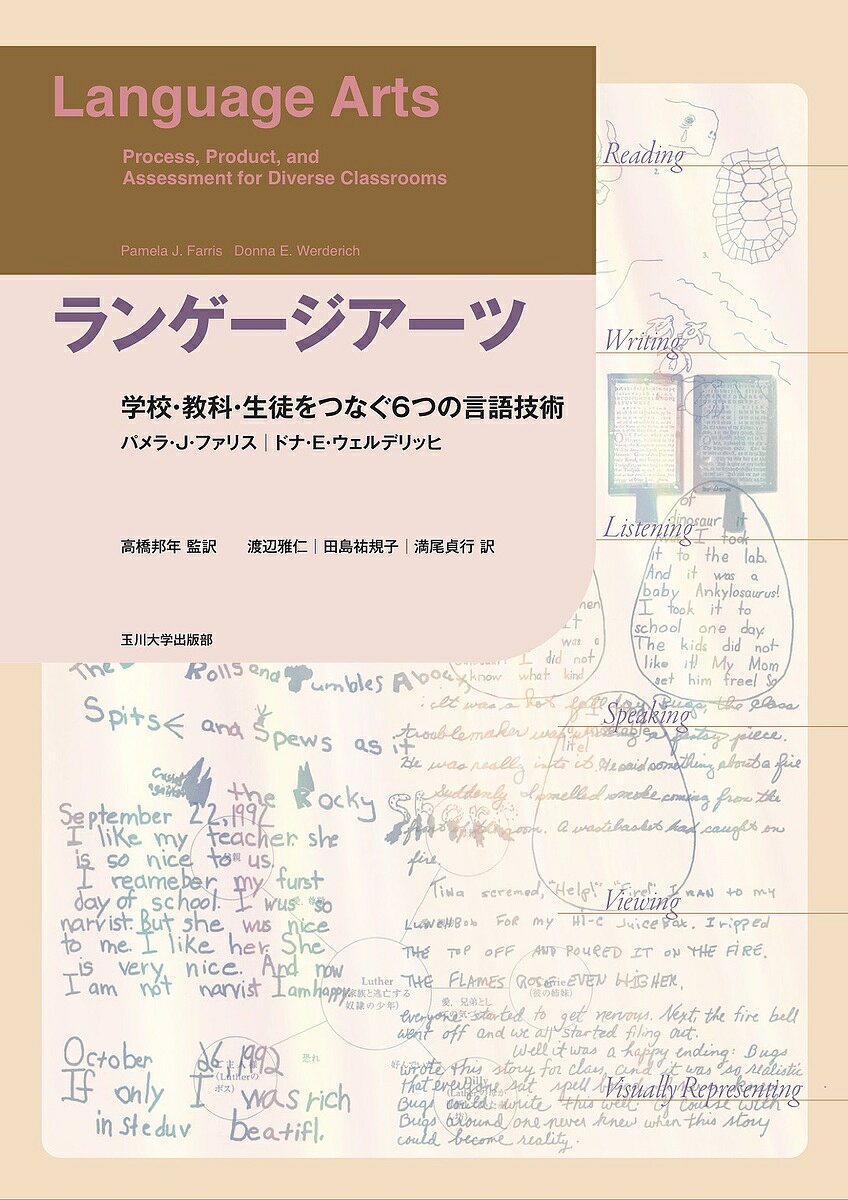 Language Arts
Process, Product, and
Assessment for Diverse Classrooms
Pamela J. Farris Donna E. Werderich
ランゲージアーツ
学校・教科・生徒をつなぐ6つの言語技術
パメラ・J・ファリス｜ドナ・E・ウェルデリッヒ
高橋邦年 監訳 渡辺雅仁｜田島祐規子｜満尾貞行 訳
玉川大学出版部
Reading
2.
3.
Writing
Listening
of
dinosaur it
I took
it to the lab.
And it was a
baby Ankylosaurus!
I took it to
school one day.
The kids did not
like it! My Mom
set him free! So
I did not
know what kind
Speaking
Viewing
Visually Representing
The Rolls and Tumbles
Spits and Spews as it
the Rocky
September 22, 1992
I like my teacher. she
is so nice to us.
I reameber my furst
day of school. I wus so
narvist. But she wus nice
to me. I like her. She
is very nice. And now
I am not narvist I am happy.
October 26, 1992
If only I was rich
in steduv beatifl.
It was a hot fall day. Bugs, the class
troublemaker was a fantasy piece.
He was really into it. He said something about a fire
Suddenly I smelled smoke coming from the
room. A wastebasket had caught on
fire.
Tina scremed, "Help!" "Fire!" I ran to my
Lunchbox for my Hi-C Juice Box. I ripped
the top off and poured it on the fire.
The flames rose even higher.
everyone started to get nervous. Next the fire bell
went off and we all started filing out.
Well it was a happy ending: Bugs
wrote this story for class, and it was so realistic
that everyone sat spell
Bugs could write this well. Of course with
Bugs around, one never knew when this story
could become reality.
Luther
(家族と逃亡する
奴隷の少年)
愛、兄弟とし
(彼の姉妹)
恐れ
(Lutherの
ボス)